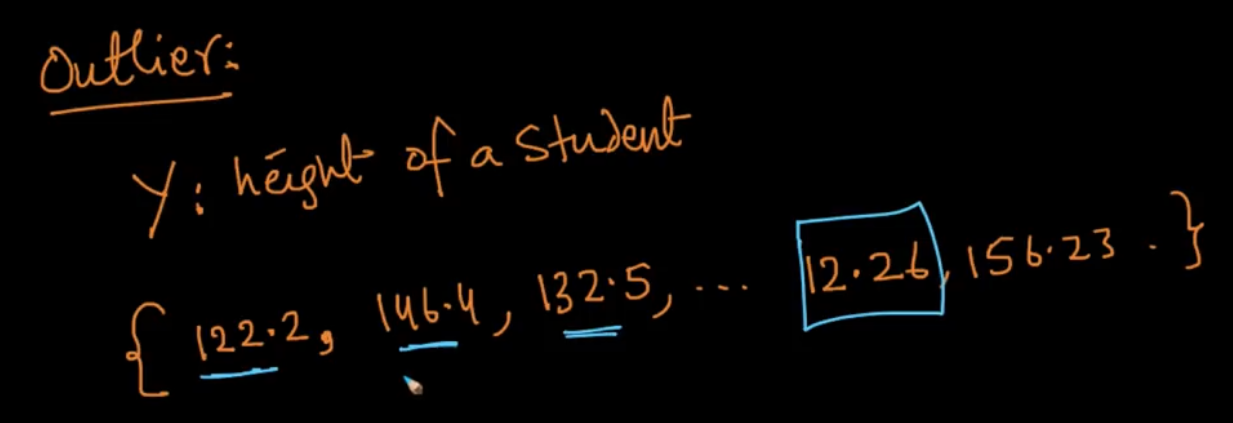 Outlier:
Y: height of a student
{ 122.2, 146.4, 132.5, ... 12.26, 156.23 . }